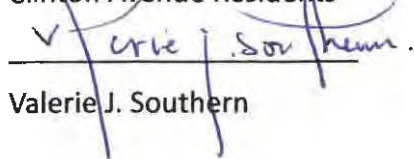 Clinton Avenue Residents
Valerie J. Southern.
Valerie J. Southern